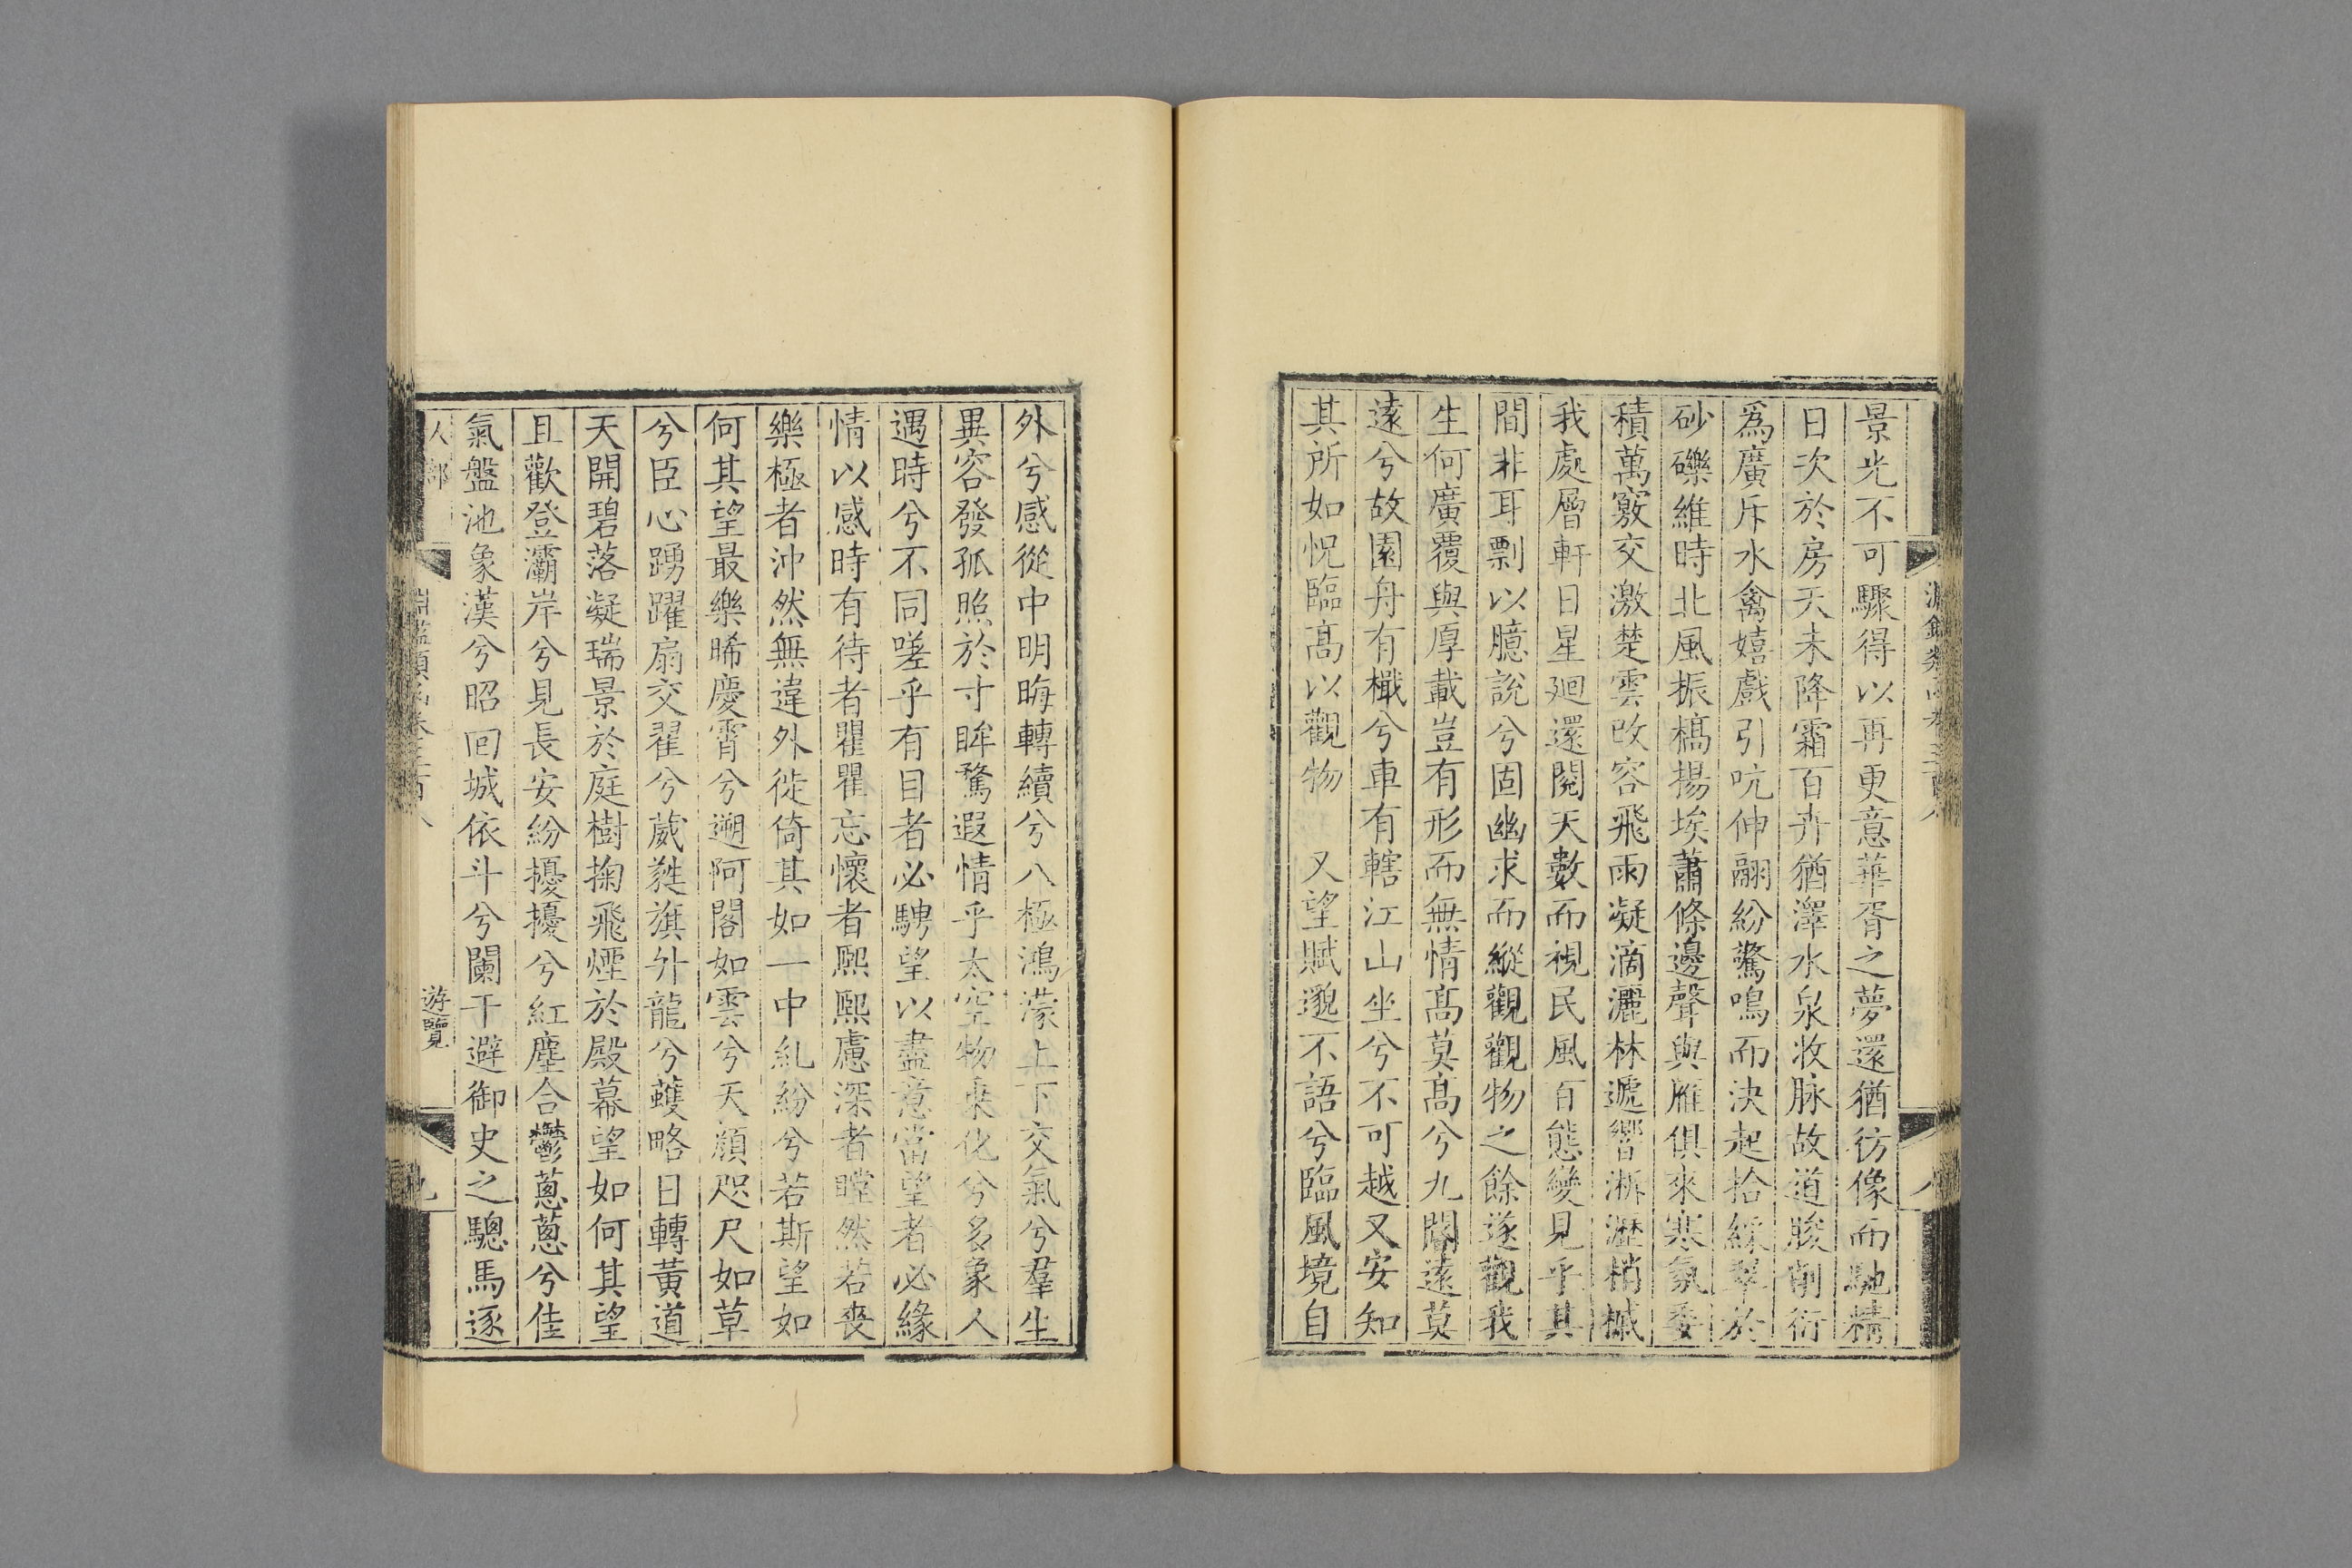 景光不可驟得以再更意華胥之夢還猶彷像而馳精
日次於房天未降霜百卉猶澤水泉收脉故道朘削衍
爲廣斥水禽嬉戲引吭伸翮紛驚鳴而決起拾綵翠於
砂礫維時北風振槁揚埃蕭條邊聲與雁俱來寒氣委
積萬竅交激楚雲改容飛雨凝滴灑林遞響淅瀝梢槭
我處層軒日星廻還閱天數而視民風百態變見乎其
間非耳剽以臆說兮固幽求而縱觀觀物之餘遂觀我
生何廣覆與厚載豈有形而無情高莫高兮九閽遠莫
遠兮故園舟有檝兮車有轄江山坐兮不可越又安知
其所如怳臨高以觀物　又望賦邈不語兮臨風境自
外兮感從中明晦轉續兮八極鴻濛上下交氣兮羣生
異容發孤照於寸眸騖遐情乎太空物乘化兮多象人
遇時兮不同嗟乎有目者必騁望以盡意當望者必緣
情以感時有待者瞿瞿忘懷者熙熙慮深者瞠然若喪
樂極者沖然無違外徙倚其如一中糺紛兮若斯望如
何其望最樂晞慶霄兮遡阿閣如雲兮天顏咫尺如草
兮臣心踴躍扇交翟兮葳蕤旗升龍兮蠖略日轉黃道
天開碧落凝瑞景於庭樹掬飛煙於殿幕望如何其望
且歡登灞岸兮見長安紛擾擾兮紅塵合鬱蔥蔥兮佳
氣盤池象漢兮昭回城依斗兮闌干避御史之驄馬逐
人部
淵鑑類函卷三百八
遊覽
九